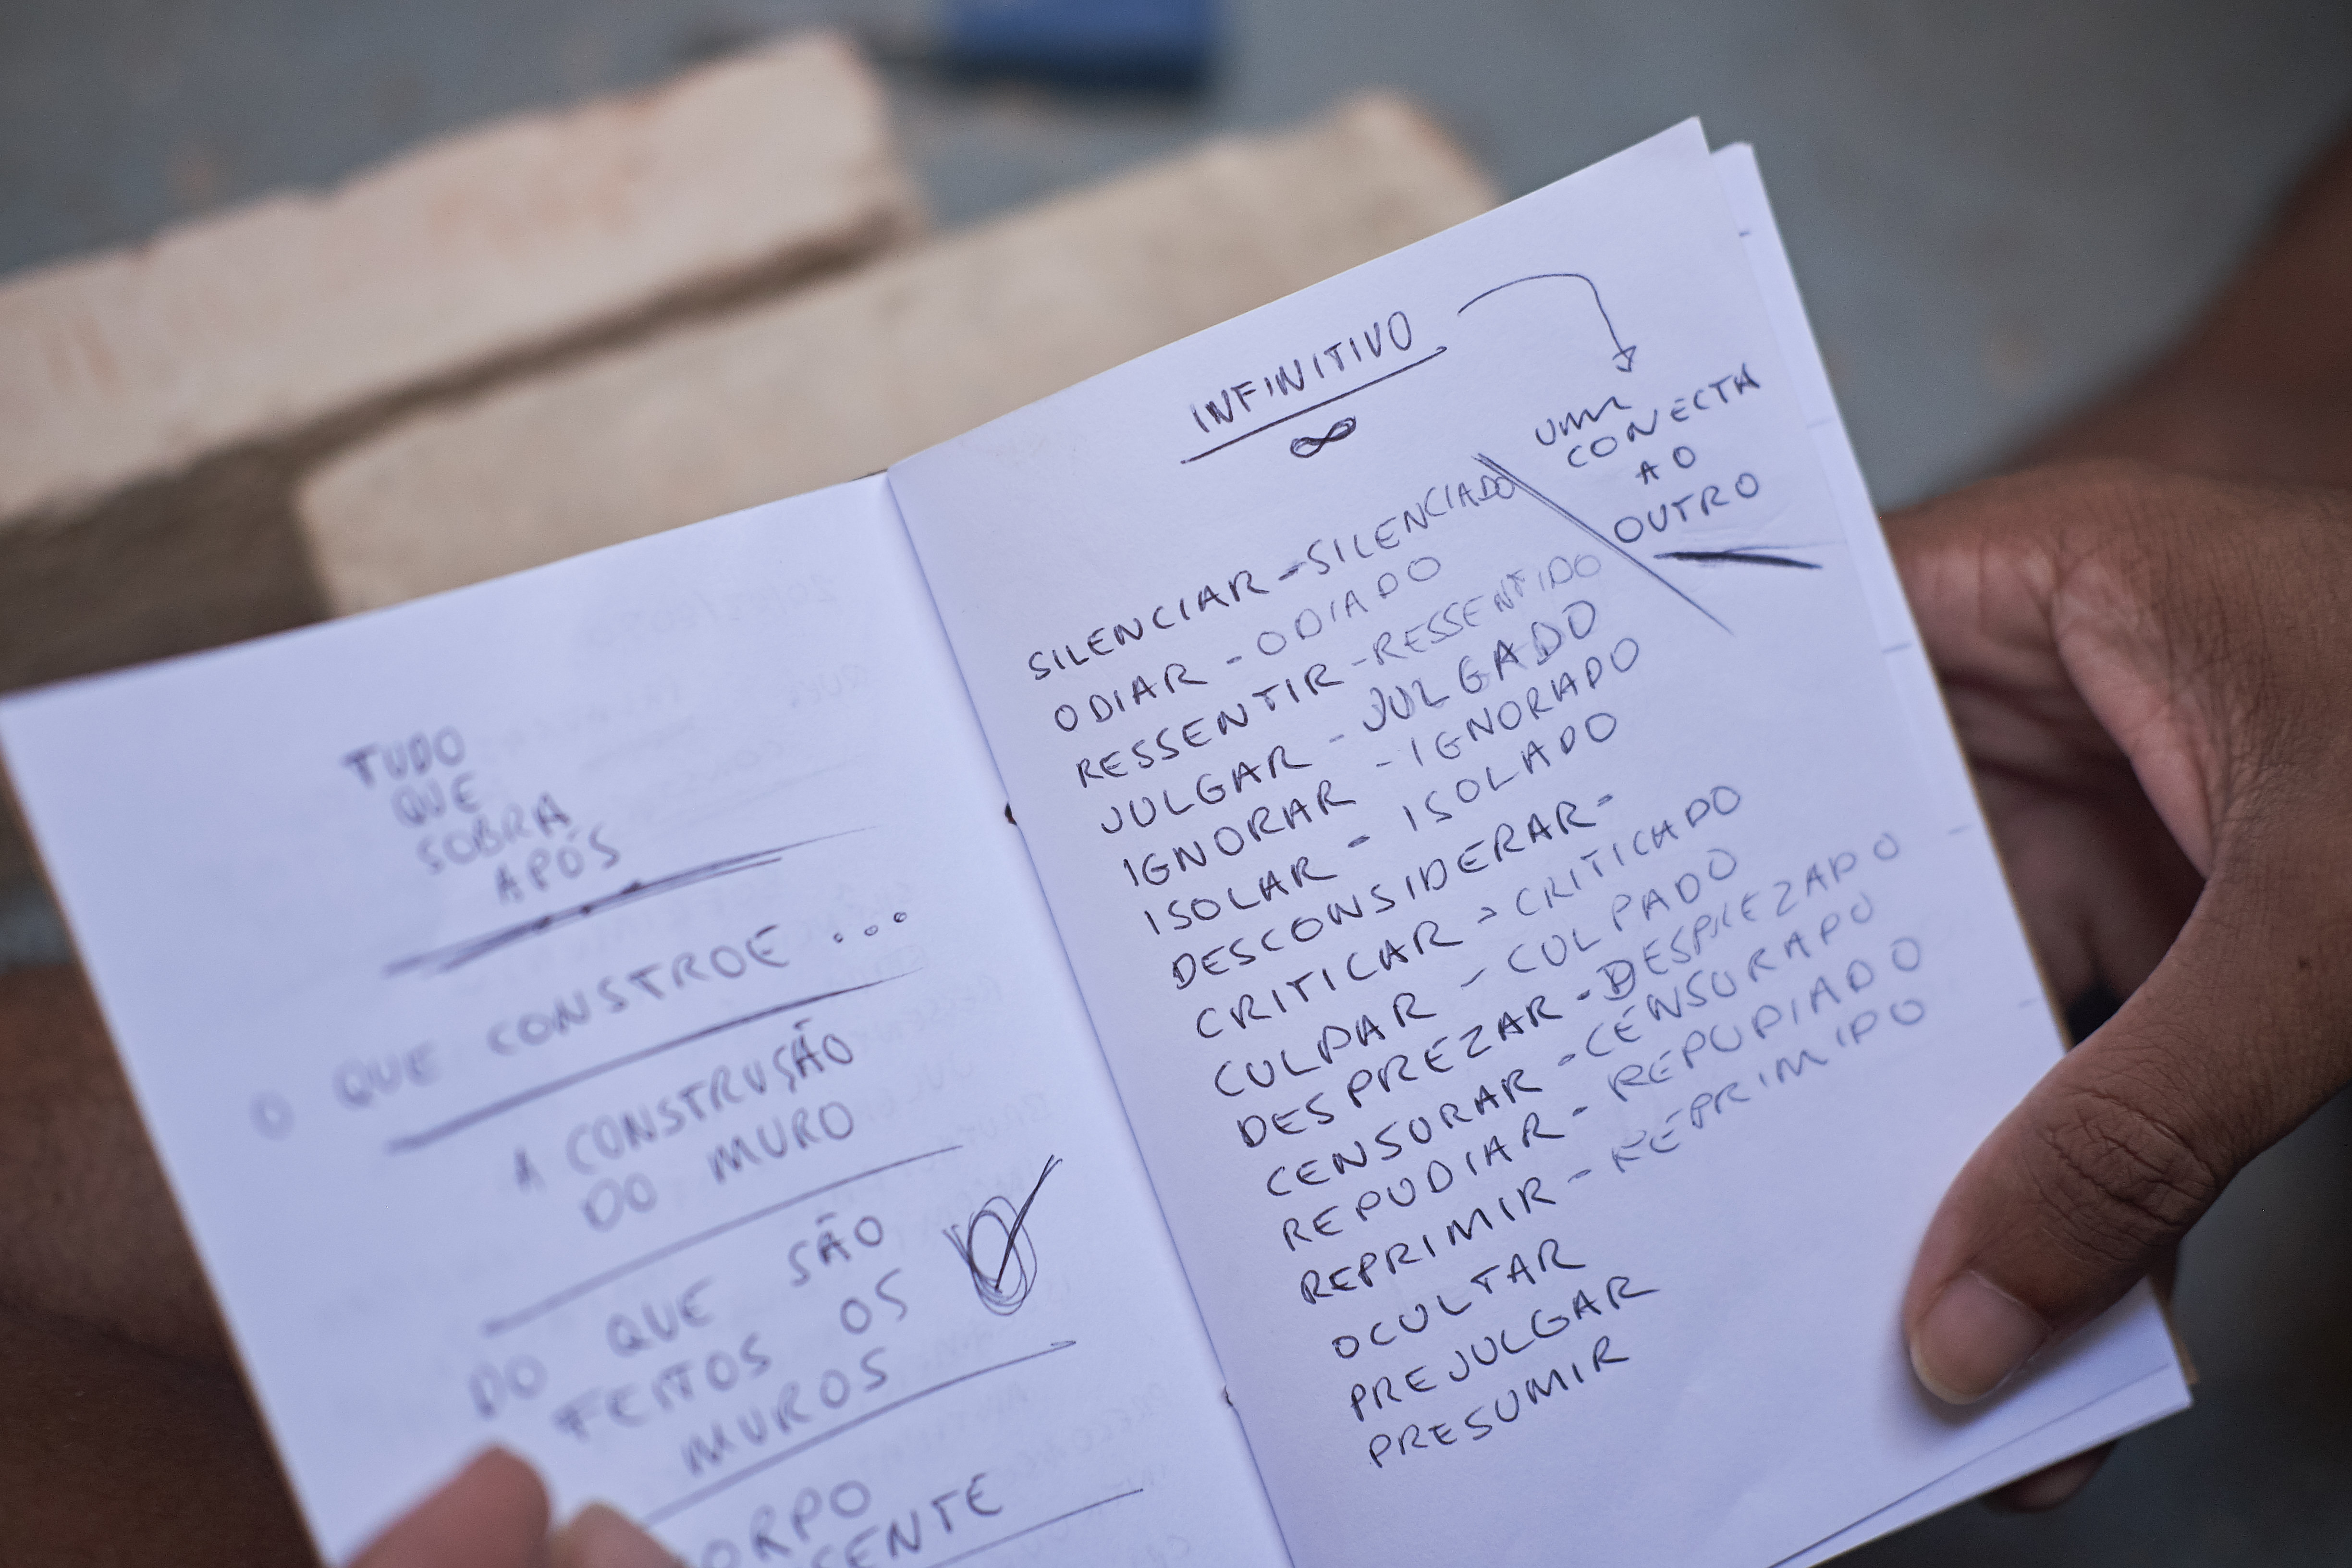 TUDO
QUE
SOBRA
APÓS
O QUE CONSTROE ...
A CONSTRUÇÃO
DO MURO
DO QUE SÃO
FEITOS OS
MUROS
ORPO
SENTE
INFINITIVO
∞
UM
CONECTA
AO
OUTRO
SILENCIAR - SILENCIADO
ODIAR - ODIADO
RESSENTIR - RESSENTIDO
JULGAR - JULGADO
IGNORAR - IGNORADO
ISOLAR - ISOLADO
DESCONSIDERAR -
CRITICAR - CRITICADO
CULPAR - CULPADO
DESPREZAR - DESPREZADO
CENSURAR - CENSURADO
REPUDIAR - REPUDIADO
REPRIMIR - REPRIMIDO
OCULTAR
PREJULGAR
PRESUMIR